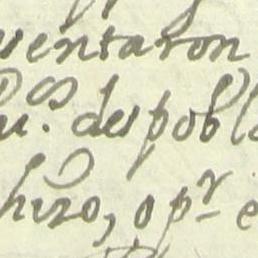 ventaron
u.s despobla
hizo, o pr e